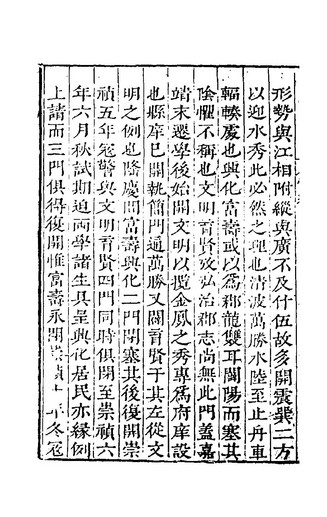 形勢與江相附縱與廣不及什伍故多開震巽二方
以迎水秀此必然之理也清波萬勝水陸至止舟車
輻輳處也興化富壽或以爲郡龍雙耳闢陽而塞其
陰懼不稱也文明育賢攷弘治郡志尚無此門蓋嘉
靖末遷學後始開文明以攬金鳳之秀專爲府庠設
也縣庠已開執簡門通萬勝又闢育賢于其左從文
明之例也隆慶間富壽興化二門開塞其後復開崇
禎五年冦警與文明育賢四門同時俱閉至崇禎六
年六月秋試期迫兩學諸生具呈興化居民亦縁例
上請而三門俱得復開惟富壽永閉崇禎十年冬冦